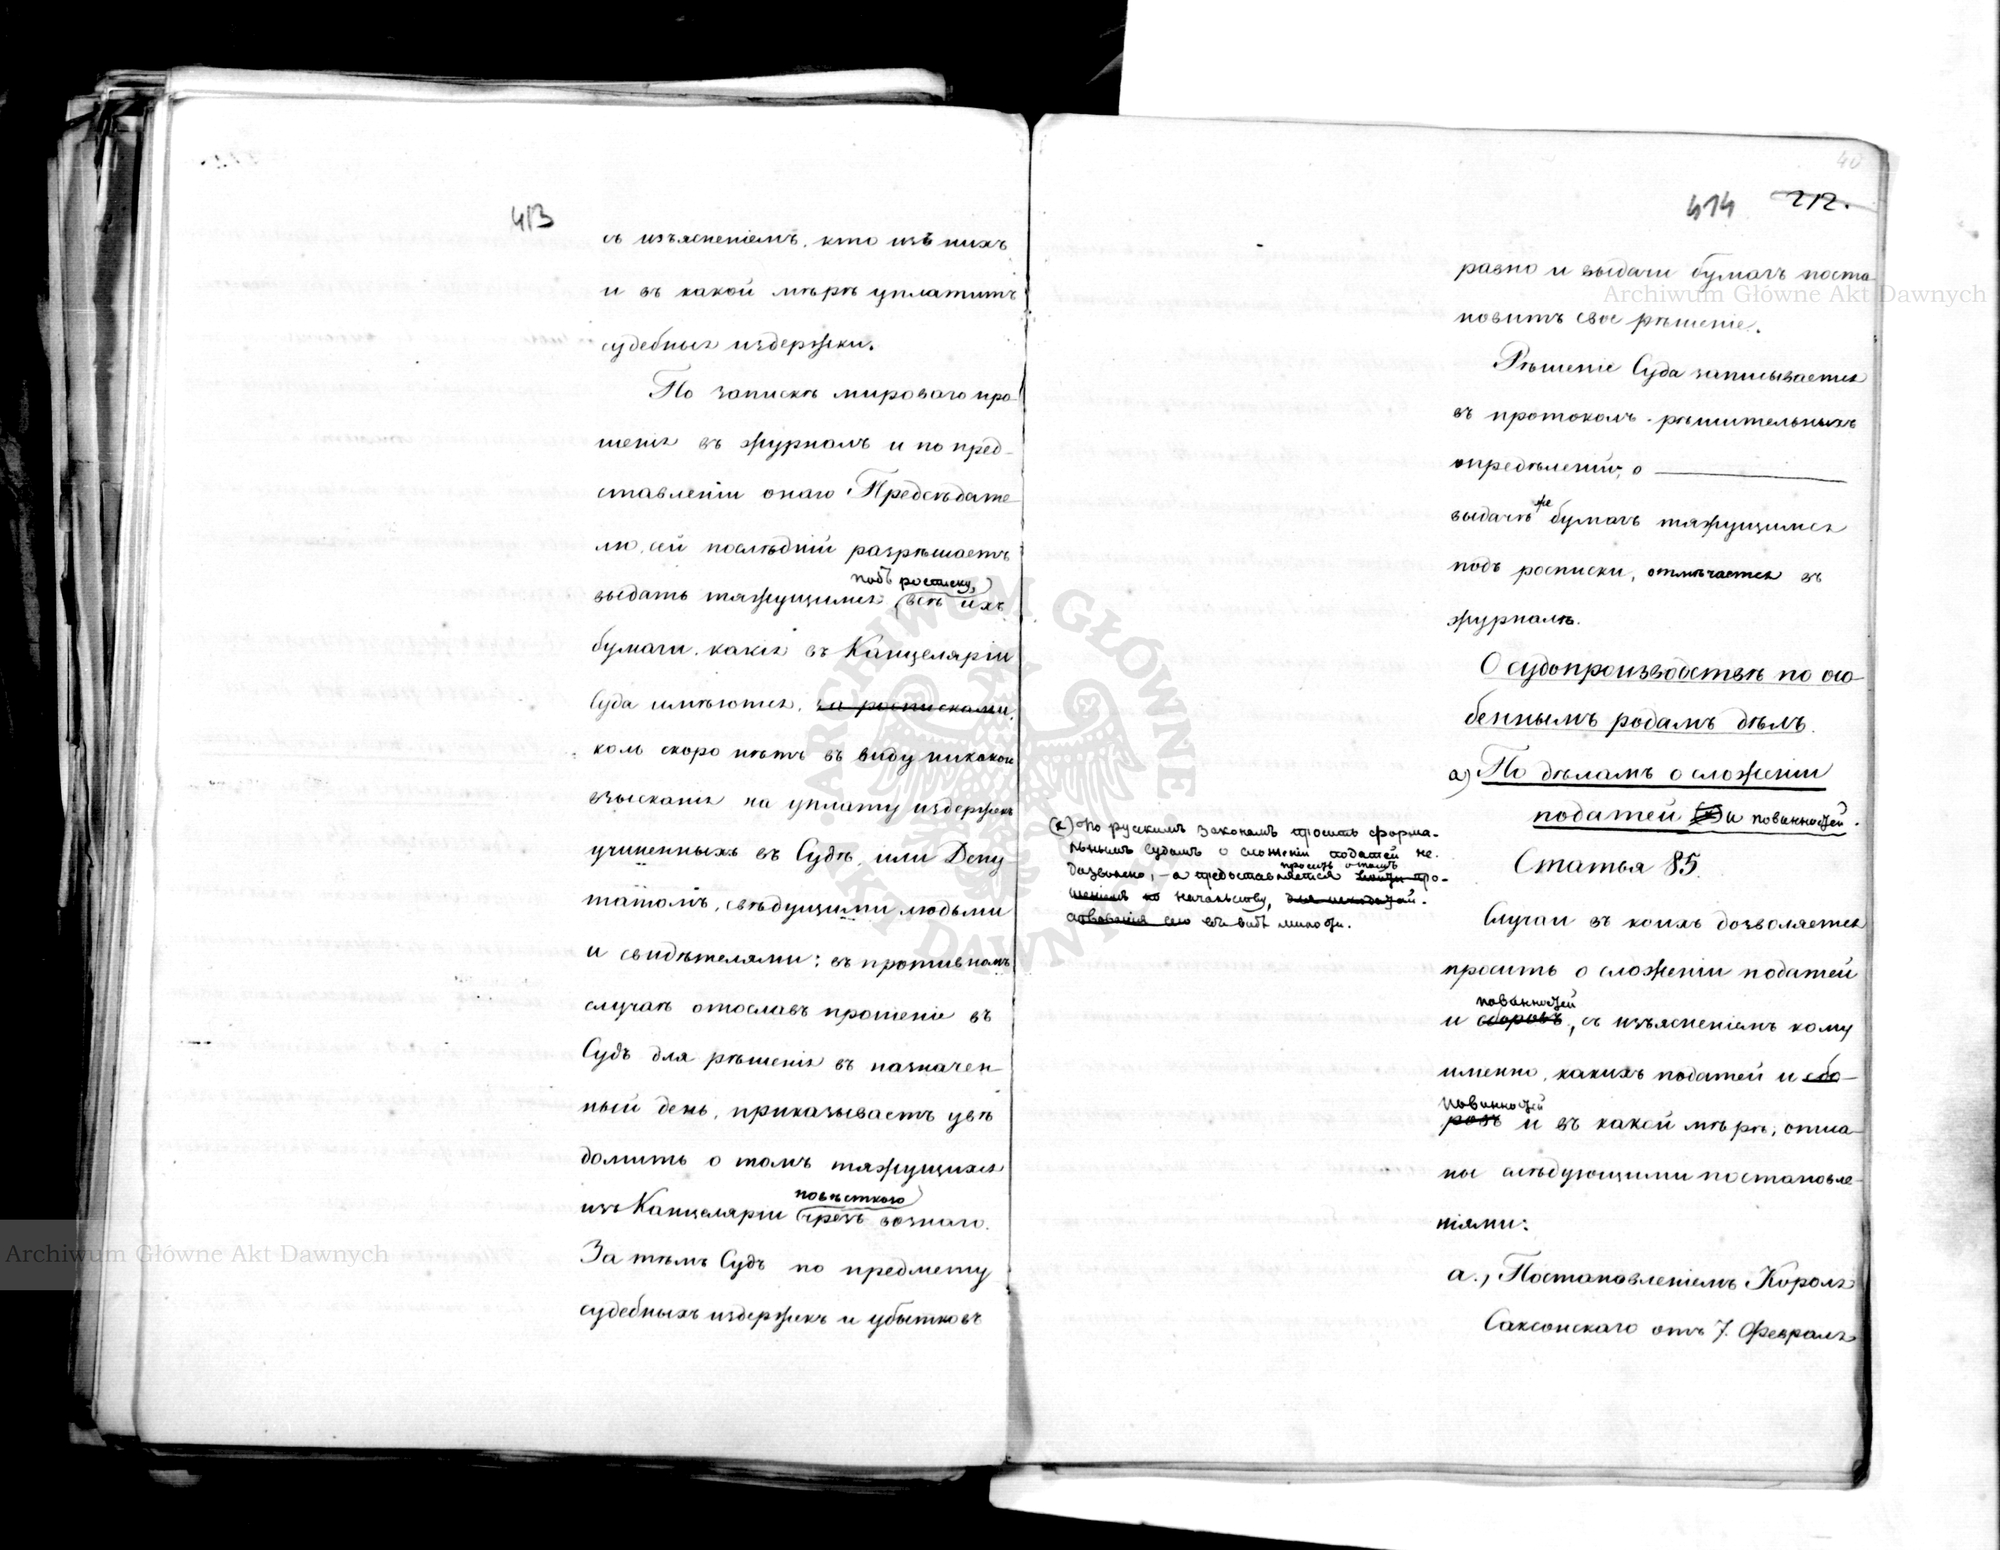 413
съ изъясненіемъ, кто изъ нихъ
и въ какой мѣрѣ уплатитъ
судебныя издержки.
По запискѣ мироваго про-
шенія въ журналъ и по пред-
ставленіи онаго Предсѣдате
лю, сей послѣдній разрѣшаетъ
подъ росписку,
выдать тяжущимся всѣ ихъ
бумаги, какія въ Канцеляріи
Суда имѣются, за росписками,
коль скоро нѣтъ въ виду никакой
взысканія на уплату издержекъ
учиненныхъ въ Судѣ, или Депу-
татомъ, свѣдущими людьми
и свидѣтелями; въ противномъ
случаѣ отославъ прошеніе въ
Судъ для рѣшенія въ назначен-
ный день, приказываетъ увѣ
домить о томъ тяжущихся
повѣсткою
изъ Канцеляріи чрезъ вознаго.
За тѣмъ Судъ по предмету
судебныхъ издержекъ и убытковъ
40
414 212.
равно и выдачи бумагъ поста
новитъ свое рѣшеніе.
Рѣшеніе Суда записывается
въ протоколъ рѣшительныхъ
опредѣленій; о
же
выдачѣ бумагъ тяжущимся
подъ росписки, отмѣчается въ
журналѣ.
О судопроизводствѣ по осо-
беннымъ родамъ дѣлъ.
а) По дѣламъ о сложеніи
податей (х) и повинностей.
(х) По русскимъ законамъ просить форма-
льнымъ судомъ о сложеніи податей не
просить о томъ
дозволено, - а предоставляется про-
шеніемъ по начальству, для исходатай-
ствованія сего въ видѣ милости.
Статья 85.
Случаи въ коихъ дозволяется
просить о сложеніи податей
повинностей
и сборовъ, съ изъясненіемъ кому
именно, какихъ податей и сбо-
повинностей
ровъ и въ какой мѣрѣ, описа-
ны слѣдующими постановле-
ніями:
а., Постановленіемъ Короля
Саксонскаго отъ 7. Февраля
Archiwum Główne Akt Dawnych
Archiwum Główne Akt Dawnych
ARCHIWUM GŁÓWNE AKT DAWNYCH